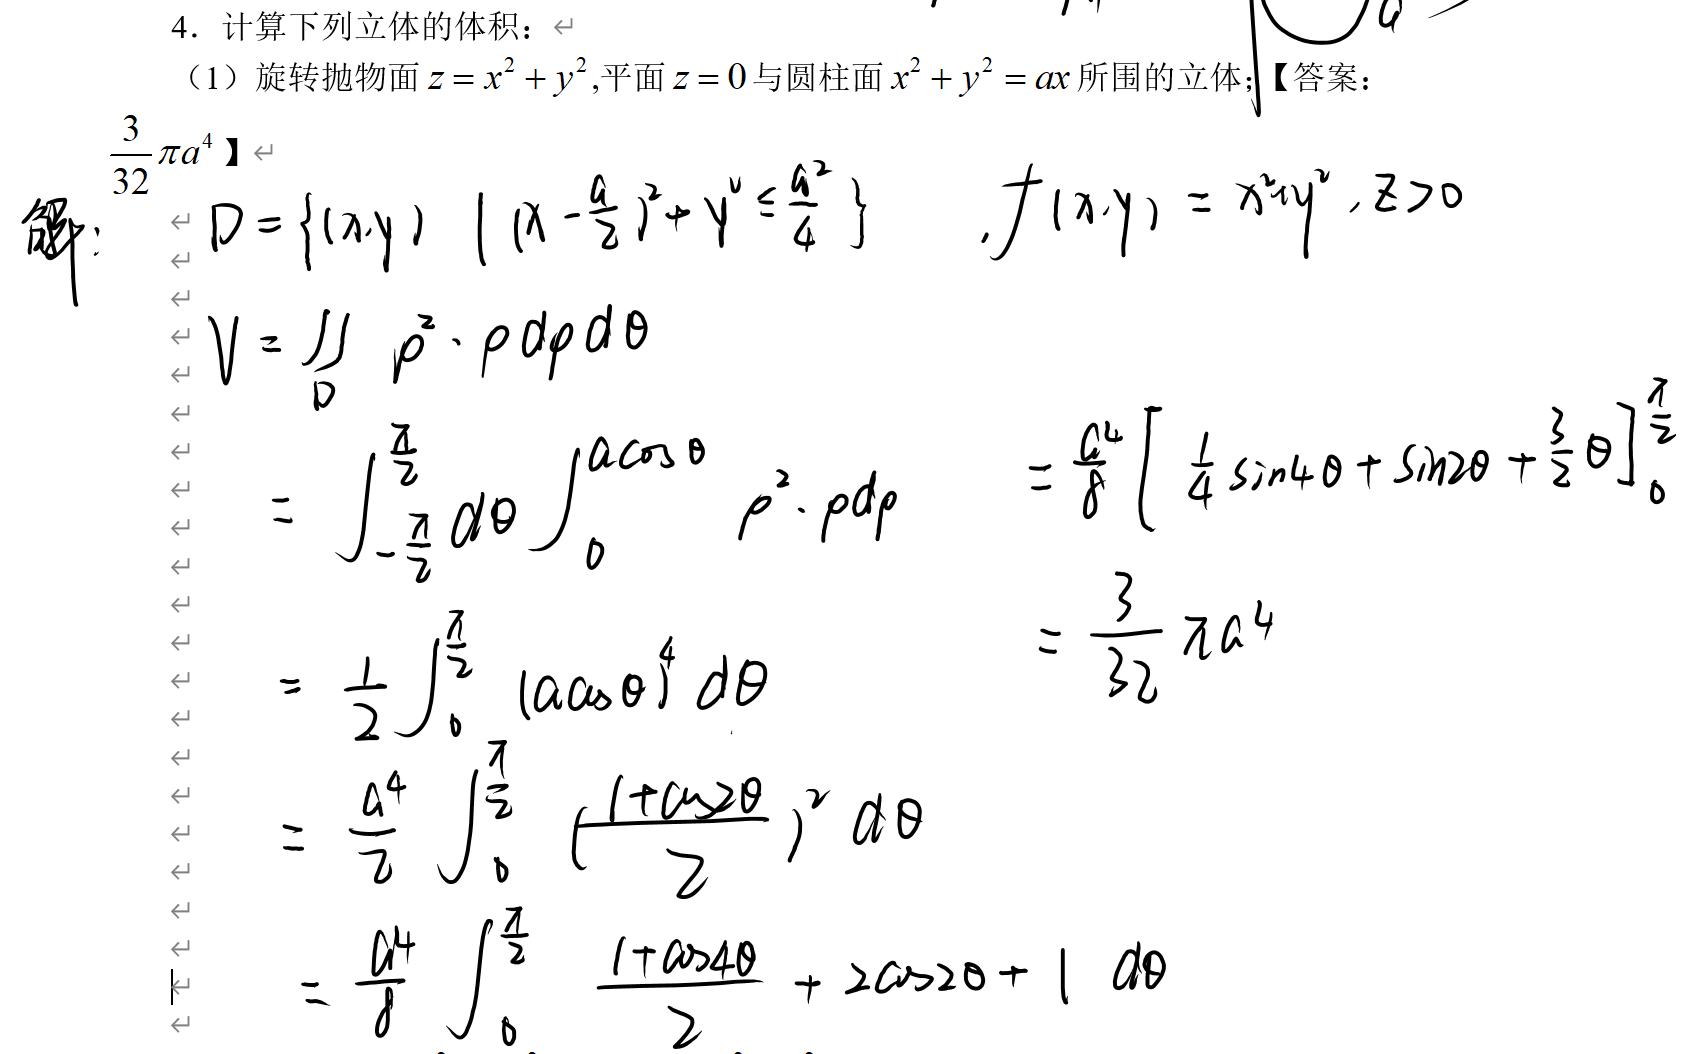 4．计算下列立体的体积：
（1）旋转抛物面 z = x² + y²,平面 z = 0 与圆柱面 x² + y² = ax 所围的立体;【答案：
3/32 πa⁴】
解： D = {(x,y) | (x - a/2)² + y² ≤ a²/4} , f(x,y) = x²+y² , z>0
V = ∬_D ρ² · ρ dρ dθ
= ∫_{-π/2}^{π/2} dθ ∫_0^{a cos θ} ρ² · ρ dρ
= 1/2 ∫_0^{π/2} (a cos θ)⁴ dθ
= a⁴/2 ∫_0^{π/2} ((1+cos2θ)/2)² dθ
= a⁴/8 ∫_0^{π/2} (1+cos4θ)/2 + 2cos2θ + 1 dθ
= a⁴/8 [1/4 sin4θ + sin2θ + 3/2 θ]_0^{π/2}
= 3/32 πa⁴